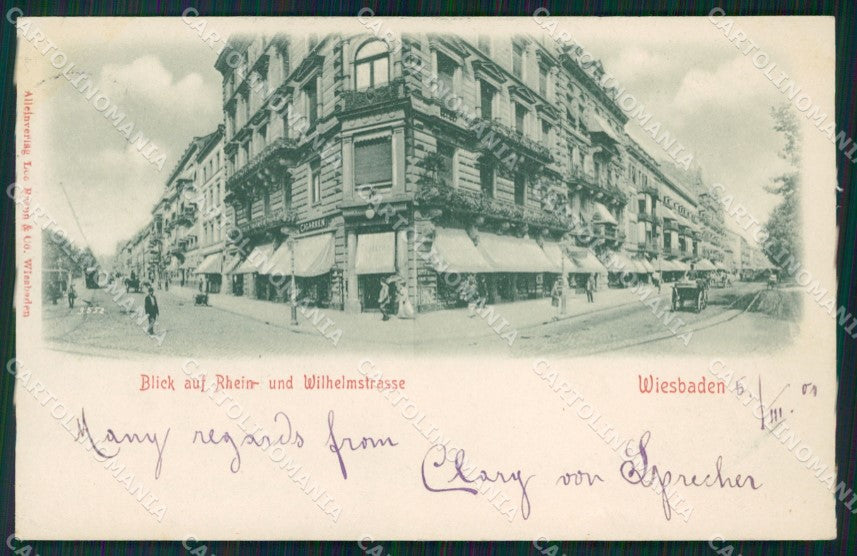 CIGARREN
3552
Alleinverlag Loc Brunn & Co, Wiesbaden
Blick auf Rhein- und Wilhelmstrasse
Wiesbaden 6./III. 01
Many regards from
Clary von Sprecher
CARTOLINOMANIA